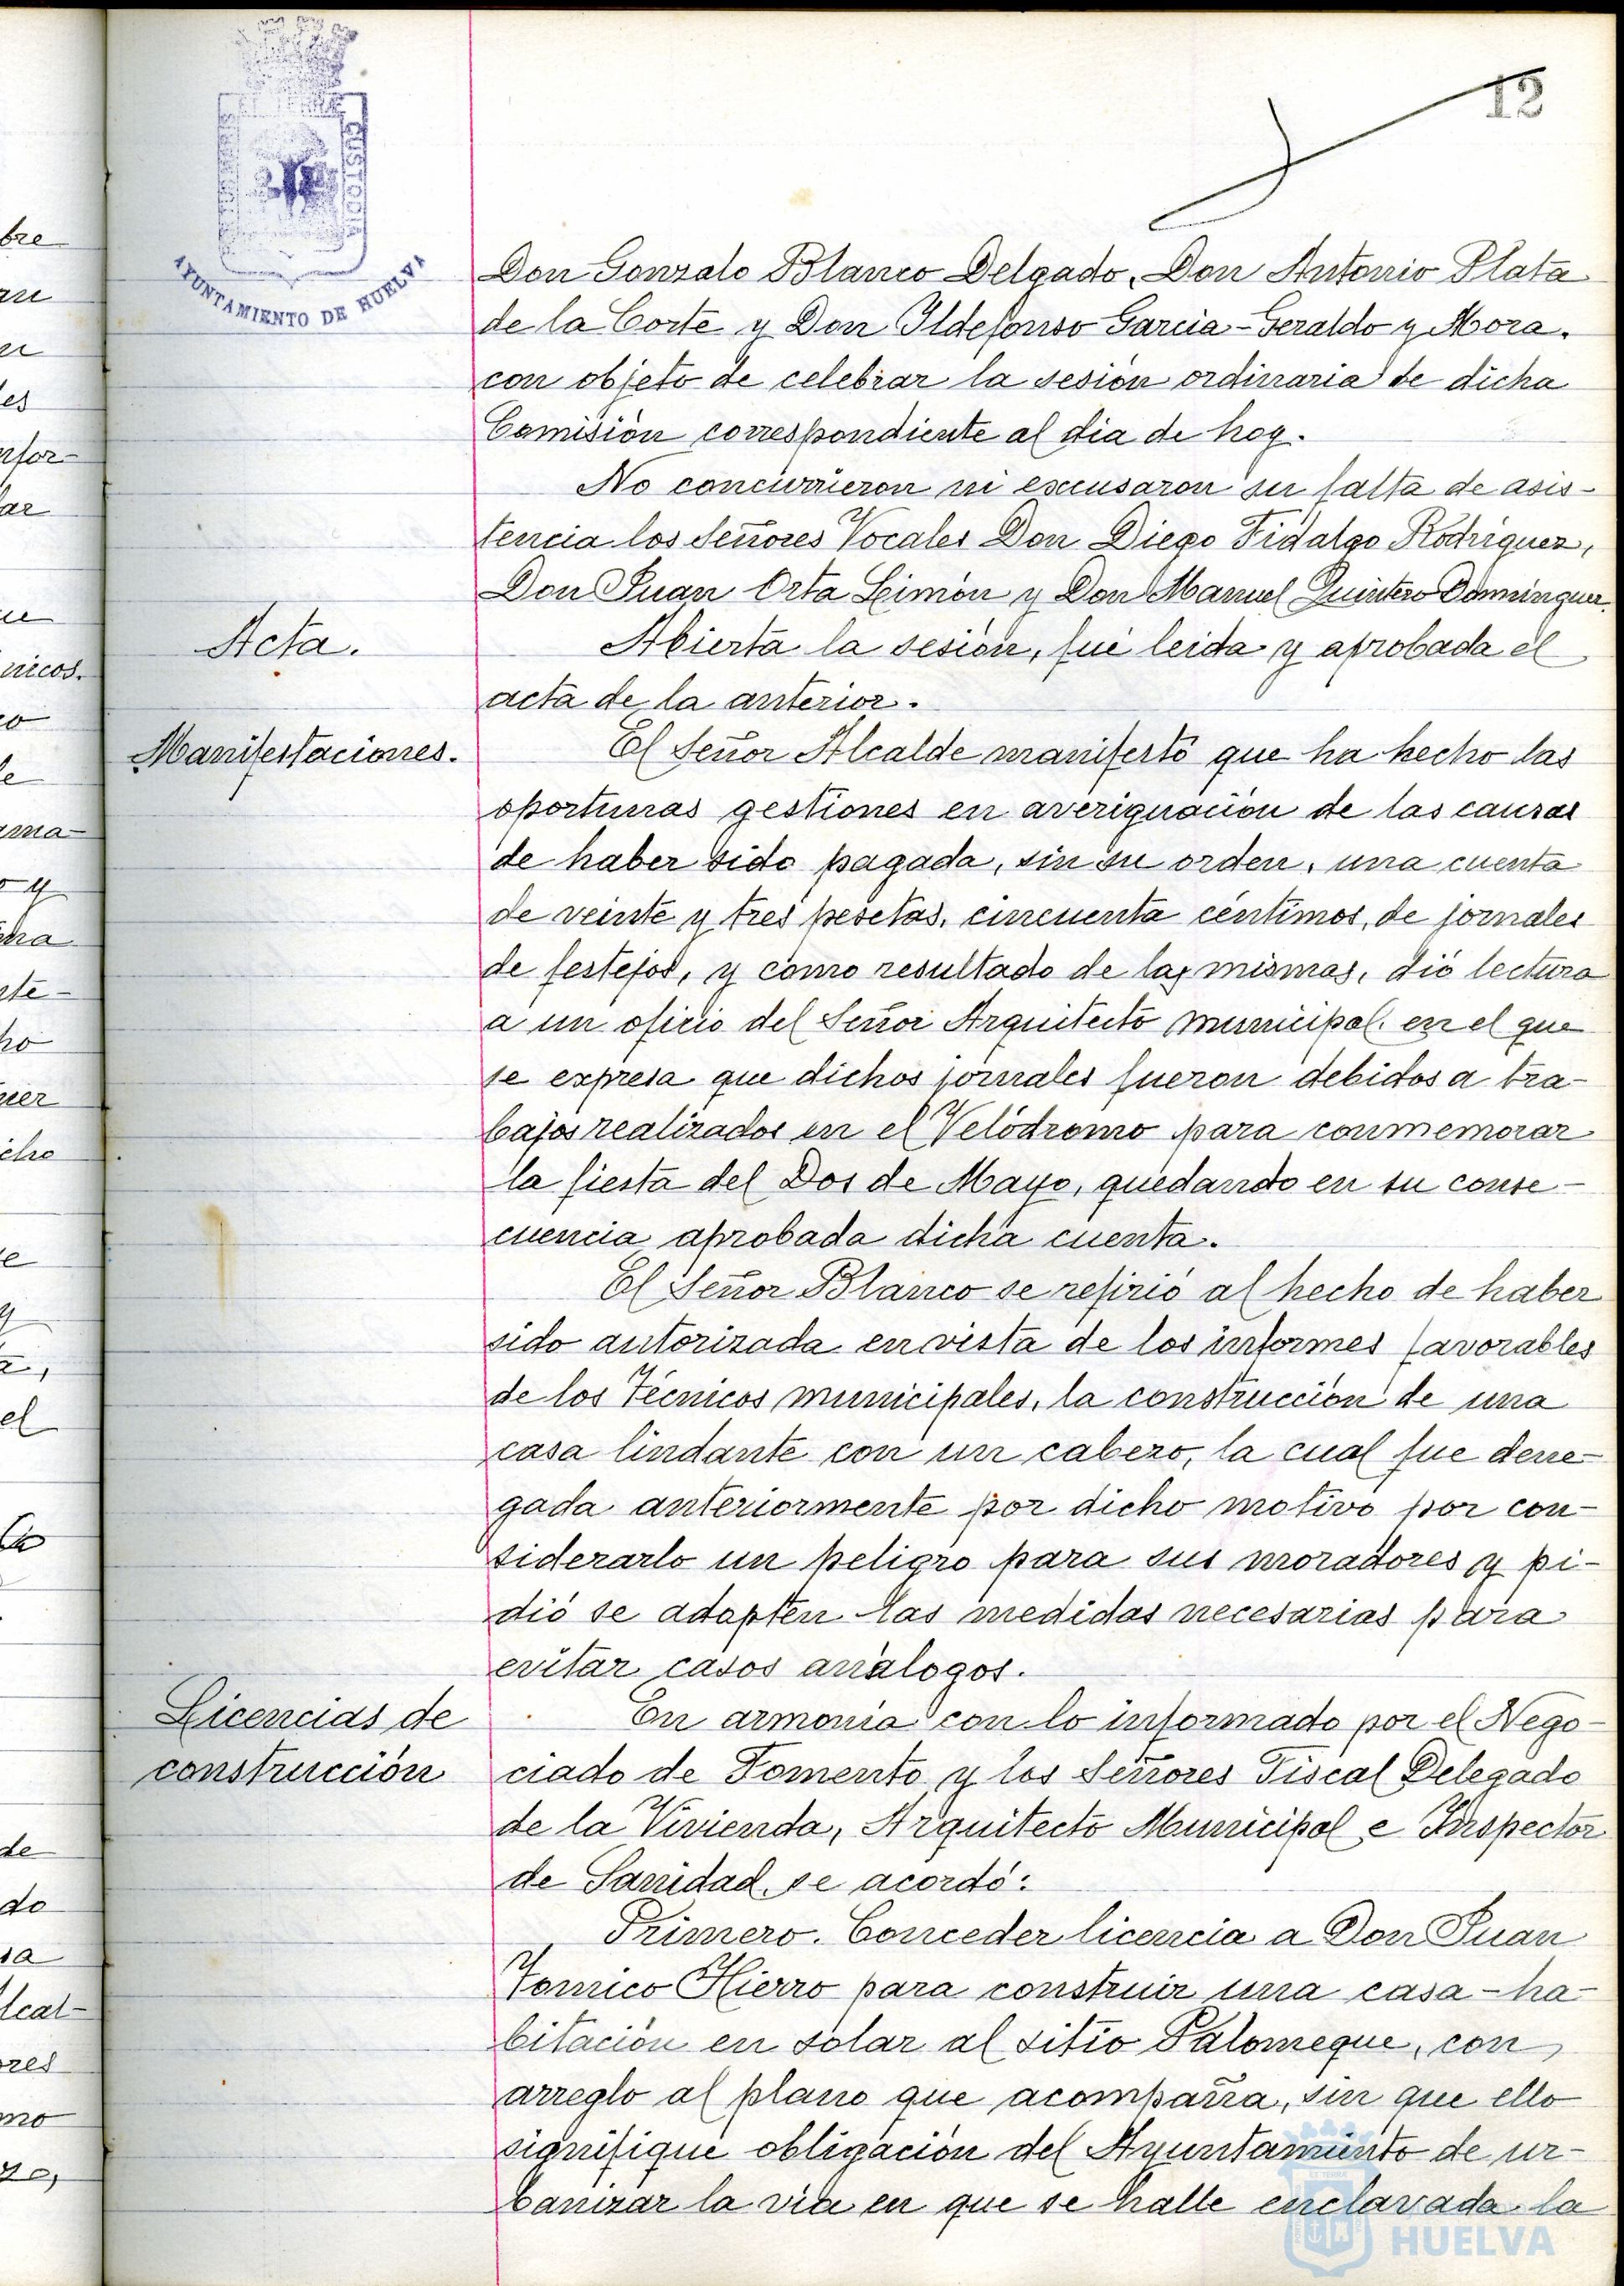 12
AYUNTAMIENTO DE HUELVA
CUSTODIA
Don Gonzalo Blanco Delgado, Don Antonio Plata
de la Corte y Don Ildefonso Garcia-Geraldo y Mora,
con objeto de celebrar la sesión ordinaria de dicha
Comisión correspondiente al dia de hoy.
No concurrieron ni excusaron su falta de asis-
tencia los Señores Vocales Don Diego Fidalgo Rodriguez,
Don Juan Orta Limón y Don Manuel Quintero Dominguez.
Acta.
Abierta la sesión, fué leida y aprobada el
acta de la anterior.
Manifestaciones.
El Señor Alcalde manifestó que ha hecho las
oportunas gestiones en averiguación de las causas
de haber sido pagada, sin su orden, una cuenta
de veinte y tres pesetas, cincuenta céntimos, de jornales
de festejos, y como resultado de las mismas, dió lectura
a un oficio del Señor Arquitecto municipal, en el que
se expresa que dichos jornales fueron debidos a tra-
bajos realizados en el Velódromo para conmemorar
la fiesta del Dos de Mayo, quedando en su conse-
cuencia aprobada dicha cuenta.
El Señor Blanco se refirió al hecho de haber
sido autorizada en vista de los informes favorables
de los Técnicos municipales, la construcción de una
casa lindante con un cabezo, la cual fue dene-
gada anteriormente por dicho motivo por con-
siderarlo un peligro para sus moradores y pi-
dió se adopten las medidas necesarias para
evitar casos análogos.
Licencias de
construcción
En armonia con lo informado por el Nego-
ciado de Fomento y los Señores Fiscal Delegado
de la Vivienda, Arquitecto Municipal e Inspector
de Sanidad, se acordó:
Primero. Conceder licencia a Don Juan
Tomico Hierro para construir una casa-ha-
bitación en solar al sitio Palomeque, con
arreglo al plano que acompaña, sin que ello
signifique obligación del Ayuntamiento de ur-
banizar la via en que se halle enclavada la
HUELVA